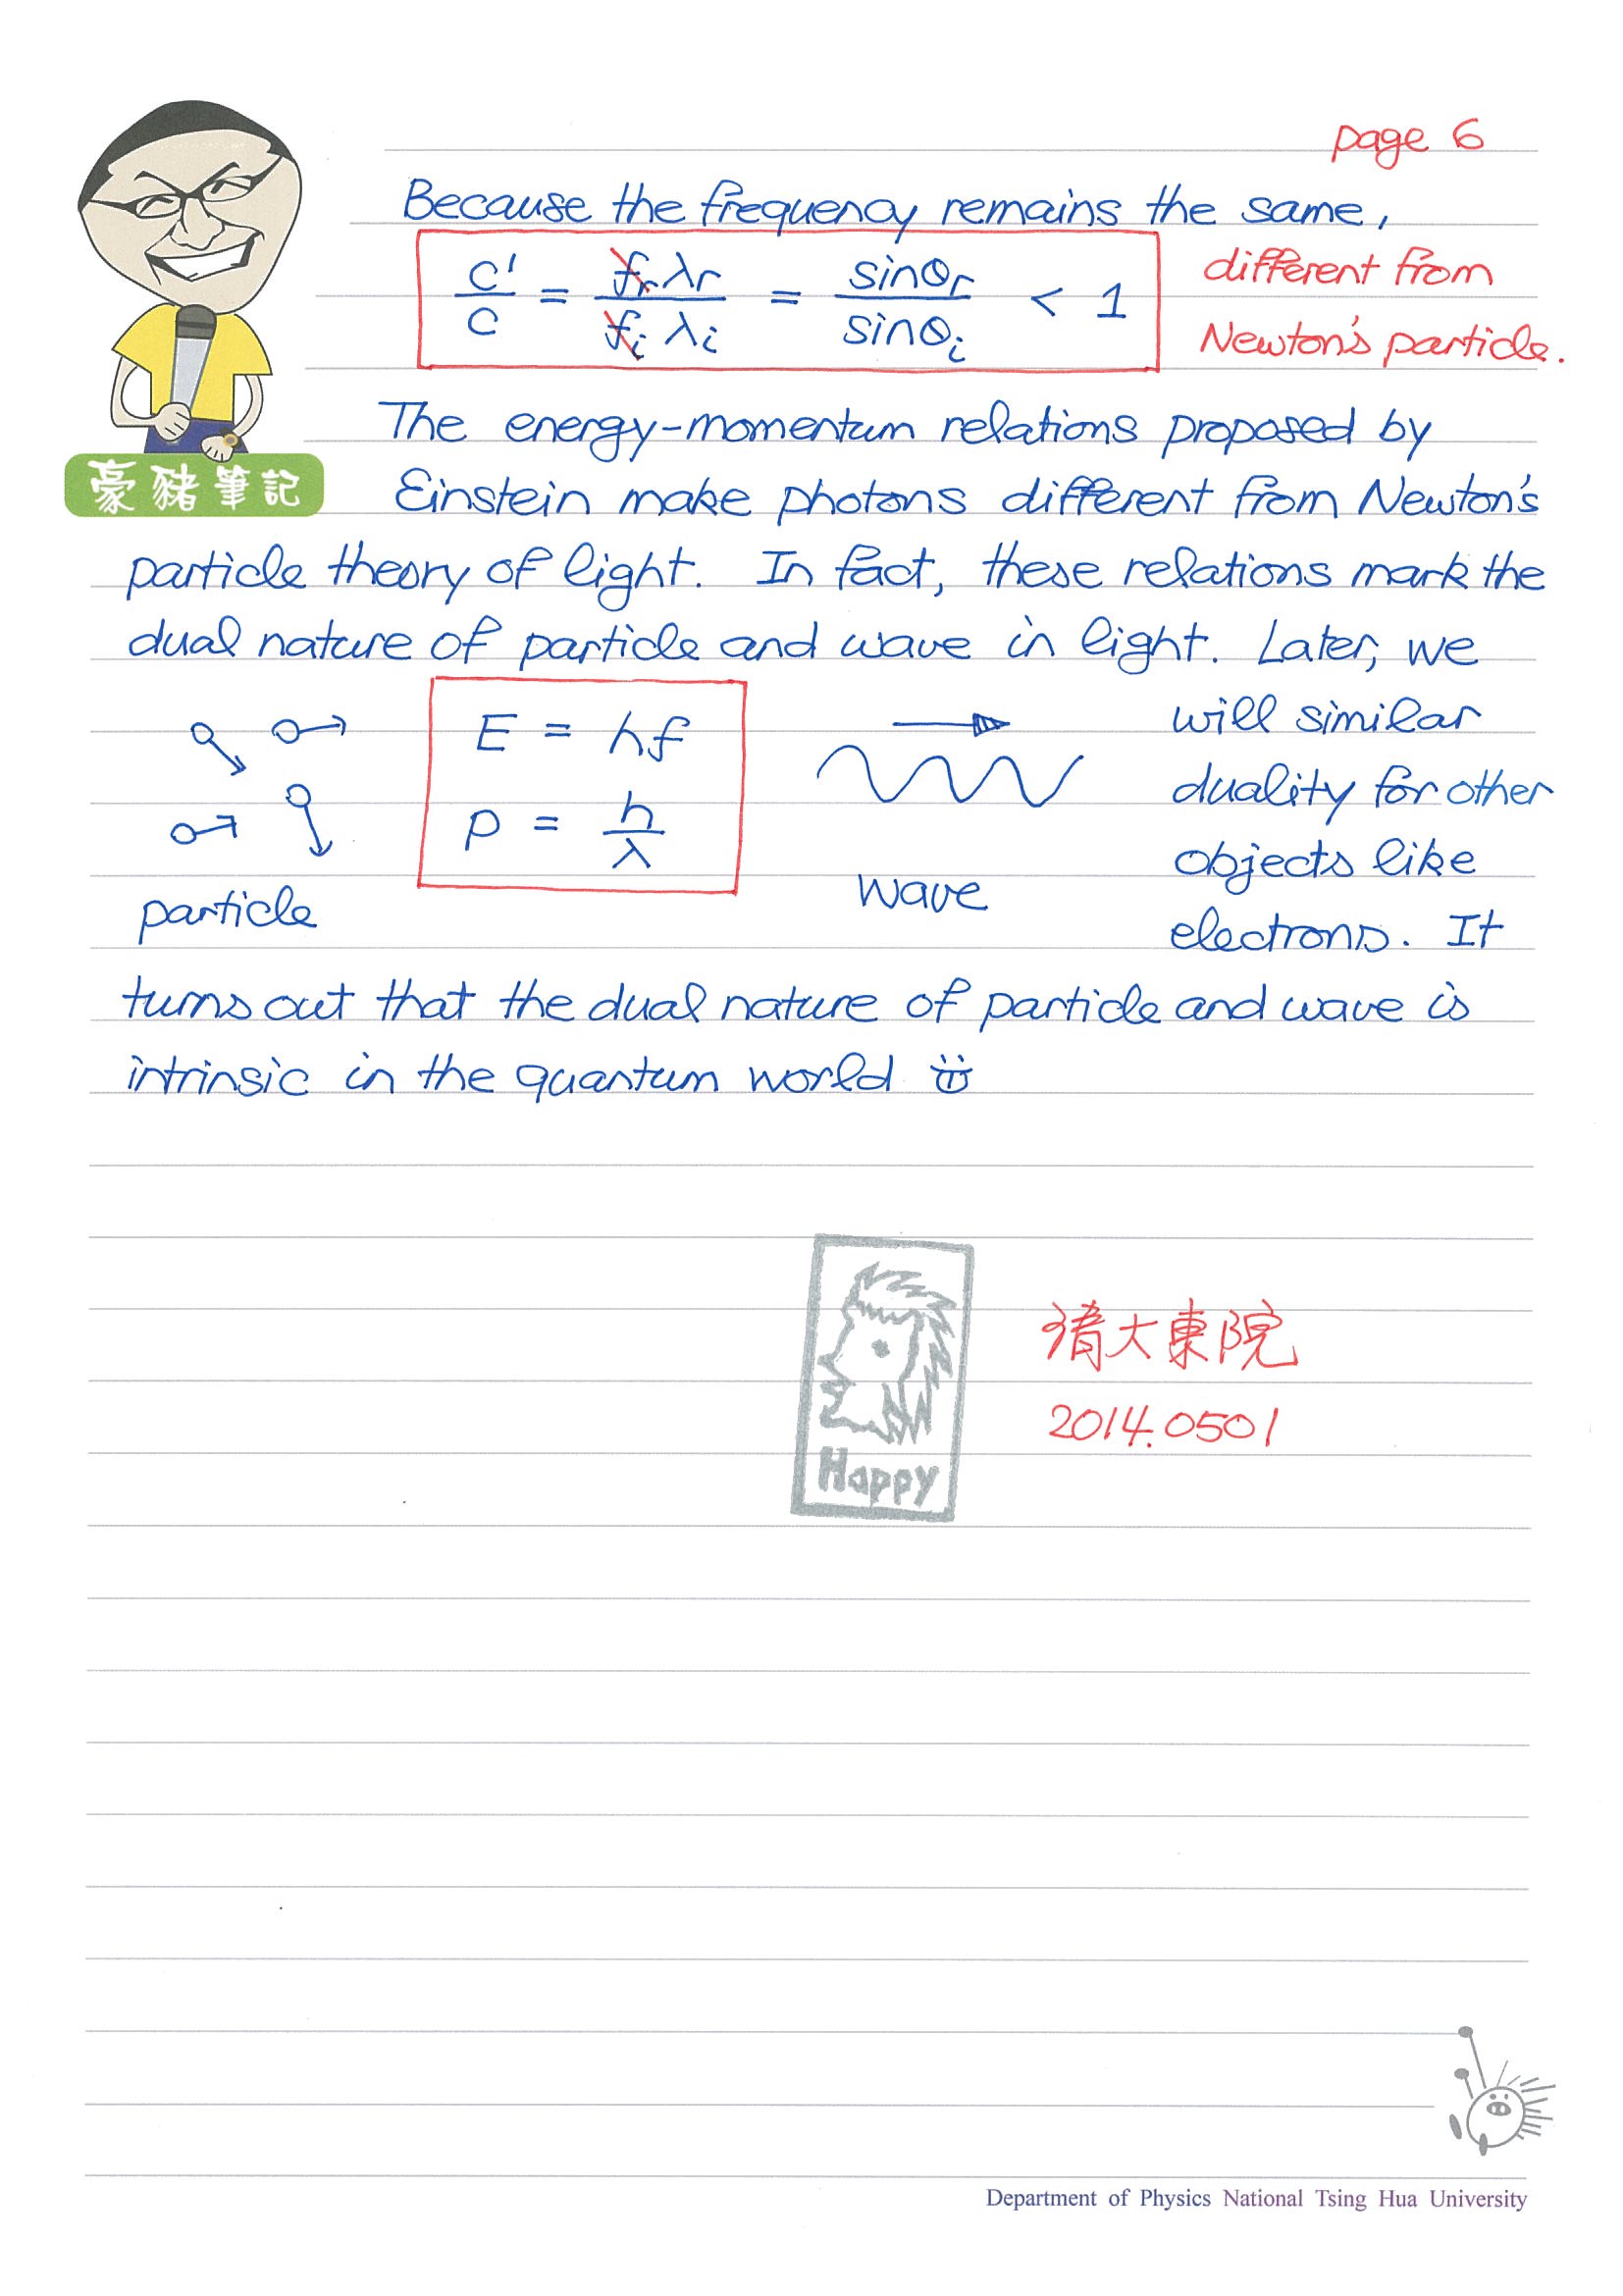 page 6
Because the frequency remains the same,
c'/c = fr λr / fi λi = sinθr / sinθi < 1
different from
Newton's particle.
The energy-momentum relations proposed by
豪豬筆記
Einstein make photons different from Newton's
particle theory of light. In fact, these relations mark the
dual nature of particle and wave in light. Later, we
will similar
duality for other
objects like
electrons. It
E = hf
p = h/λ
particle
wave
turns out that the dual nature of particle and wave is
intrinsic in the quantum world
Happy
清大東院
2014.0501
Department of Physics National Tsing Hua University